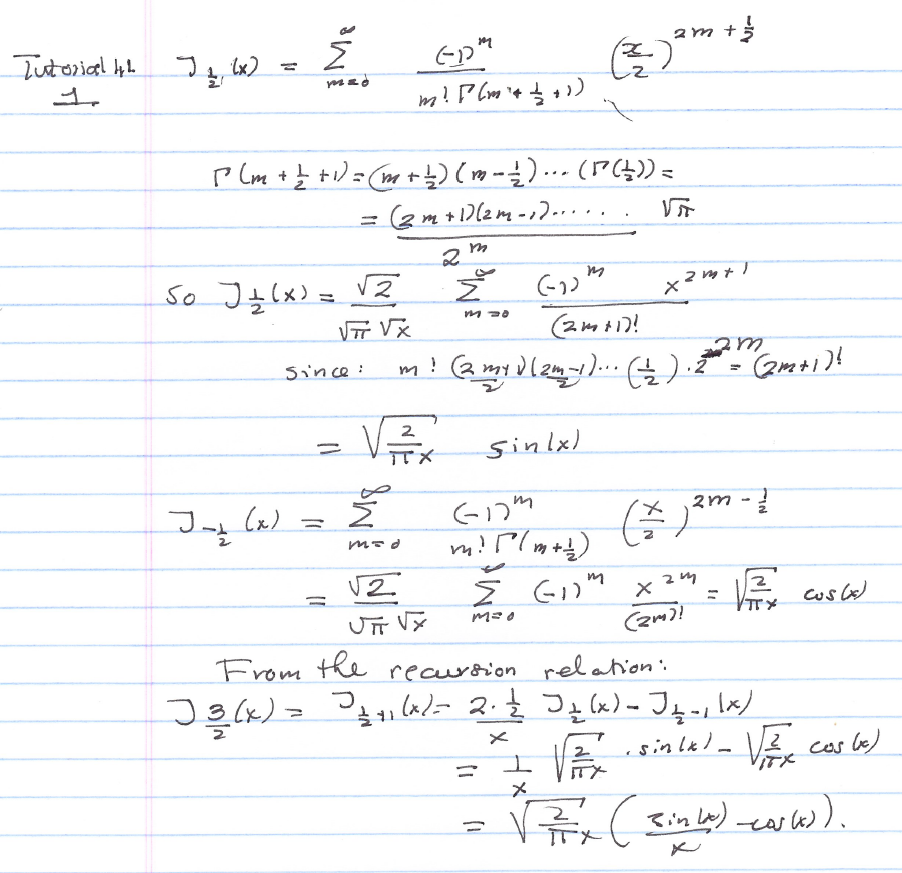 Tutorial 4L J_{1/2}(x) = Σ_{m=0}^{∞} (-1)^m / (m! Γ(m + 1/2 + 1)) (x/2)^{2m + 1/2}
1.
Γ(m + 1/2 + 1) = (m + 1/2)(m - 1/2) ... (Γ(1/2)) =
= (2m+1)(2m-1)....... / 2^m √π
So J_{1/2}(x) = √2 / (√π √x) Σ_{m=0}^{∞} (-1)^m x^{2m+1} / (2m+1)!
since: m! (2m+1)/2 (2m-1)/2 ... (1/2) . 2^{2m} = (2m+1)!
= √(2/(πx)) sin(x)
J_{-1/2}(x) = Σ_{m=0}^{∞} (-1)^m / (m! Γ(m+1/2)) (x/2)^{2m - 1/2}
= √2 / (√π √x) Σ_{m=0}^{∞} (-1)^m x^{2m} / (2m)! = √(2/(πx)) cos(x)
From the recursion relation:
J_{3/2}(x) = J_{1/2+1}(x) = (2 . 1/2)/x J_{1/2}(x) - J_{1/2-1}(x)
= 1/x √(2/(πx)) . sin(x) - √(2/(πx)) cos(x)
= √(2/(πx)) (sin(x)/x - cos(x)).